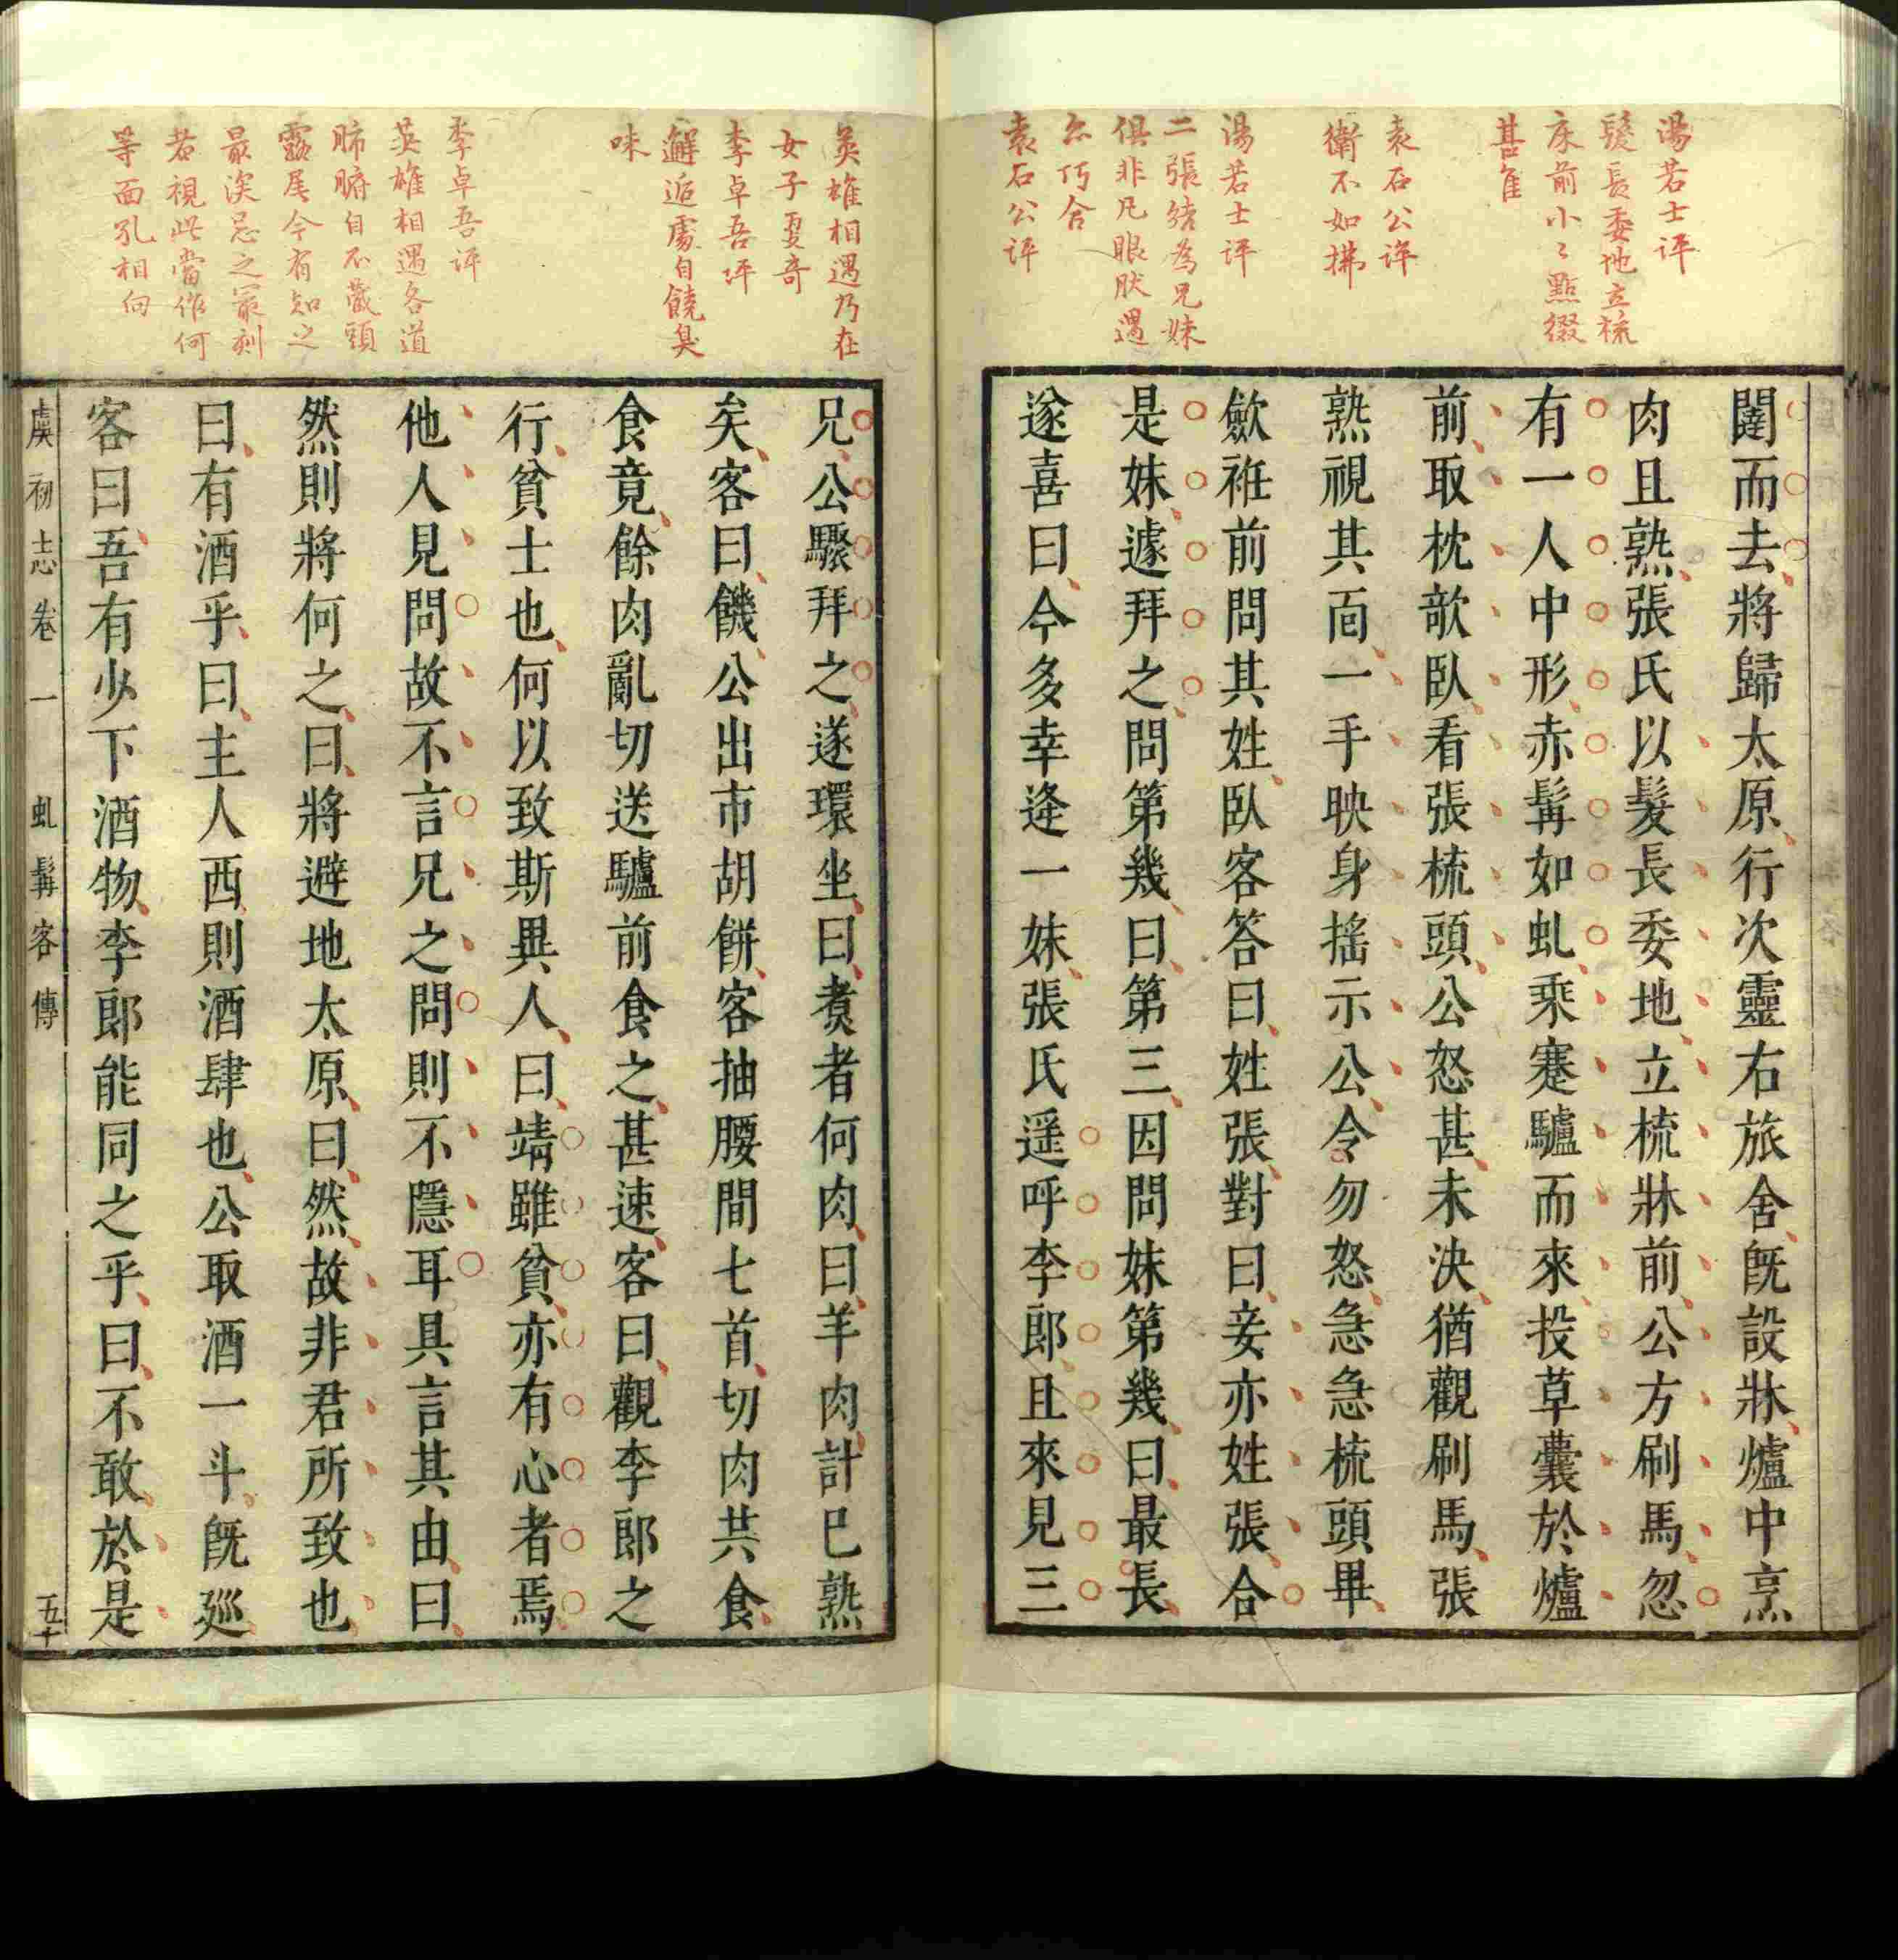 湯若士評
髮長委地立梳
床前小〻點綴
甚隹
袁石公評
衛不如拂
湯若士評
二張結為兄妹
俱非凡眼肰遇
亦巧合
袁石公評
闥而去將歸太原行次靈右旅舍既設牀爐中烹
肉且熟張氏以髮長委地立梳牀前公方刷馬忽
有一人中形赤髯如虬乘蹇驢而來投草囊於爐
前取枕欹臥看張梳頭公怒甚未決猶觀刷馬張
熟視其面一手映身搖示公令勿怒急急梳頭畢
歛袵前問其姓臥客答曰姓張對曰妾亦姓張合
是妹遽拜之問第幾曰第三因問妹第幾曰最長
遂喜曰今多幸逢一妹張氏遥呼李郎且來見三
英雄相遇乃在
女子更奇
李卓吾評
邂逅處自饒臭
味
李卓吾評
英雄相遇各道
肺腑自不藏頭
露尾今有知之
最深忌之最刻
者視此當作何
等面孔相向
兄公驟拜之遂環坐曰煑者何肉曰羊肉計已熟
矣客曰饑公出市胡餅客抽腰間七首切肉共食
食竟餘肉亂切送驢前食之甚速客曰觀李郎之
行貧士也何以致斯異人曰靖雖貧亦有心者焉
他人見問故不言兄之問則不隱耳具言其由曰
然則將何之曰將避地太原曰然故非君所致也
曰有酒乎曰主人西則酒肆也公取酒一斗既廵
客曰吾有少下酒物李郎能同之乎曰不敢於是
虞初志卷一 虬髯客傳 五十